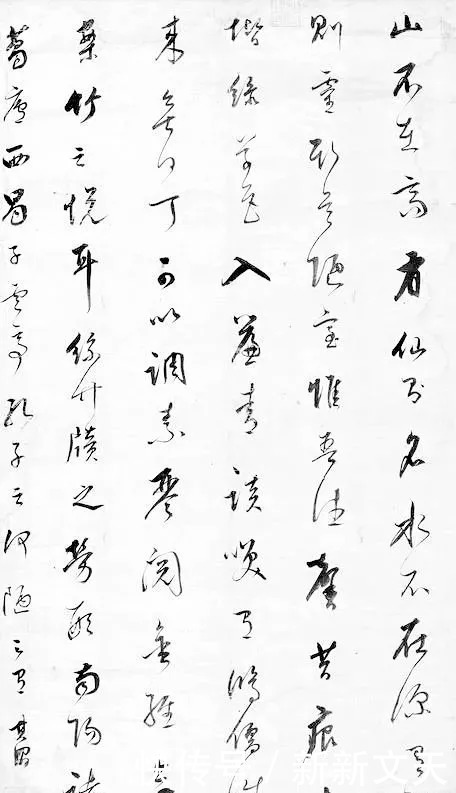 山不在高有仙則名水不在深有
則靈斯是陋室惟吾德馨苔痕上
堦綠草色入簾青談咲有鴻儒往
來無白丁可以調素琴閱金經無
案竹之耳絲竹牘之勞形南陽諸
葛廬西蜀子雲亭孔子云何陋之有 其昌
新新文天